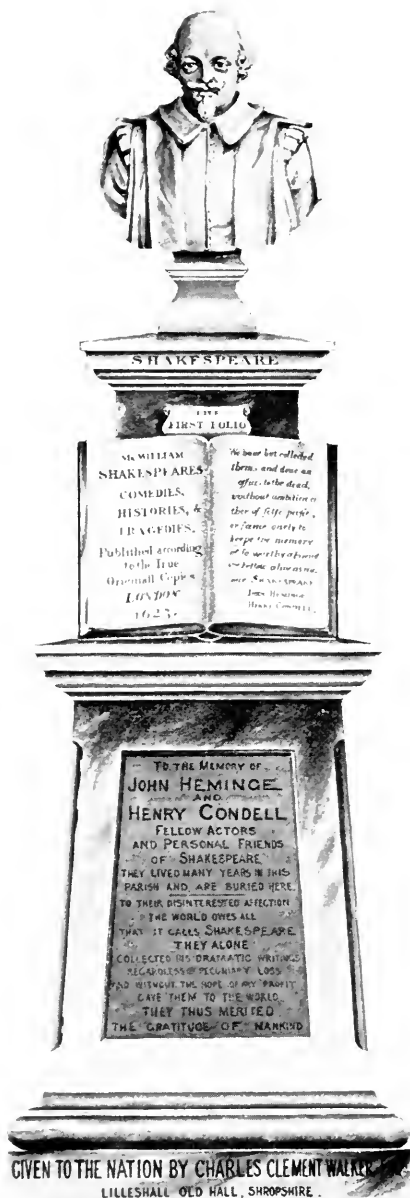 SHAKESPEARE
THE
FIRST FOLIO
Mr. WILLIAM
SHAKESPEARES
COMEDIES,
HISTORIES, &
TRAGEDIES.
Published according
to the True
Originall Copies
LONDON
1623.
We have but collected
them, and done an
office to the dead,
without ambition ei
ther of selfe profit,
or fame onely to
keepe the memory
of so worthy a friend
and fellow alive as was
our SHAKESPEARE
JOHN HEMINGE
HENRY CONDELL.
TO THE MEMORY OF
JOHN HEMINGE
AND
HENRY CONDELL
FELLOW ACTORS
AND PERSONAL FRIENDS
OF SHAKESPEARE
THEY LIVED MANY YEARS IN THIS
PARISH AND ARE BURIED HERE.
TO THEIR DISINTERESTED AFFECTION
THE WORLD OWES ALL
THAT IT CALLS SHAKESPEARE
THEY ALONE
COLLECTED HIS DRAMATIC WRITINGS
REGARDLESS OF PECUNIARY LOSS
AND WITHOUT THE HOPE OF ANY PROFIT
GAVE THEM TO THE WORLD
THEY THUS MERITED
THE GRATITUDE OF MANKIND
GIVEN TO THE NATION BY CHARLES CLEMENT WALKER
LILLESHALL OLD HALL, SHROPSHIRE